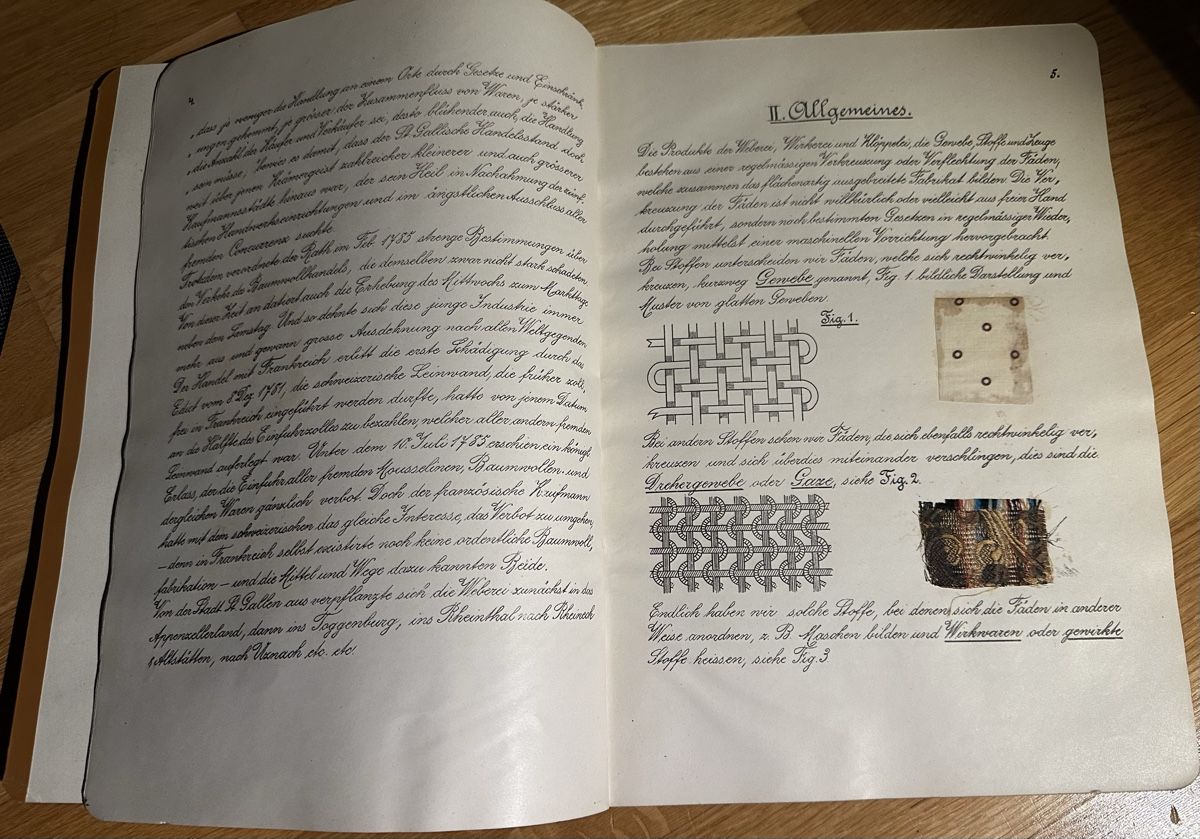 4.
„dass je weniger die Handlung an einem Orte durch Gesetze und Einschränk,
„ungen gehemmt, je grösser der Zusammenfluss von Waren, je stärker
„die Anzahl der Käufer und Verkäufer sei, desto blühender auch, die Handlung
„sein müsse, bewies es damit, dass der St. Gallische Handelsstand doch
weit über jenen Krämergeist zahlreicher kleinerer und auch grösserer
Kaufmannsstädte hinaus war, der sein Heil in Nachahmung der zünf,
tischen Handwerkseinrichtungen und im ängstlichen Ausschluss aller
fremden Concurrenz suchte.
Trotzdem verordnete der Rath im Feb. 1785 strenge Bestimmungen über
den Verkehr des Baumwollhandels, die demselben zwar nicht stark schadeten.
Von dieser Zeit an datiert auch die Erhebung des Mittwochs zum Markttage
neben dem Samstag. Und so dehnte sich diese junge Industrie immer
mehr aus und gewann grosse Ausdehnung nach allen Weltgegenden.
Der Handel mit Frankreich erlitt die erste Schädigung durch das
Edict vom 8. Dez. 1781, die schweizerische Leinwand, die früher zoll,
frei in Frankreich eingeführt werden durfte, hatte von jenem Datum
an die Hälfte des Einfuhrzolles zu bezahlen, welcher aller andern fremden
Leinwand auferlegt war. Unter dem 10. Juli 1785 erschien ein königl.
Erlass, der die Einfuhr aller fremden Mousselinen, Baumwollen- und
dergleichen Waren gänzlich verbot. Doch der französische Kaufmann
hatte mit dem schweizerischen das gleiche Interesse, das Verbot zu umgehen,
– denn in Frankreich selbst existirte noch keine ordentliche Baumwoll,
fabrikation – und die Mittel und Wege dazu kannten Beide.
Von der Stadt St. Gallen aus verpflanzte sich die Weberei zunächst in das
Appenzellerland, dann ins Toggenburg, ins Rheinthal nach Rheineck
& Altstätten, nach Uznach etc. etc.
5.
II. Allgemeines.
Die Produkte der Weberei, Wirkerei und Klöppelei, die Gewebe, Stoffe und Zeuge
bestehen aus einer regelmässigen Verkreuzung oder Verflechtung der Fäden,
welche zusammen das flächenartig ausgebreitete Fabrikat bilden. Die Ver,
kreuzung der Fäden ist nicht willkürlich oder vielleicht aus freier Hand
durchgeführt, sondern nach bestimmten Gesetzen in regelmässiger Wieder,
holung mittelst einer maschinellen Vorrichtung hervorgebracht.
Bei Stoffen unterscheiden wir Fäden, welche sich rechtwinkelig ver,
kreuzen, kurzweg Gewebe genannt, Fig. 1. bildliche Darstellung und
Muster von glatten Geweben.
Fig. 1.
Bei andern Stoffen sehen wir Fäden, die sich ebenfalls rechtwinkelig ver,
kreuzen und sich überdies miteinander verschlingen, dies sind die
Drehergewebe oder Gaze, siehe Fig. 2.
Endlich haben wir solche Stoffe, bei denen sich die Fäden in anderer
Weise anordnen, z. B. Maschen bilden und Wirkwaren oder gewirkte
Stoffe heissen, siehe Fig. 3.